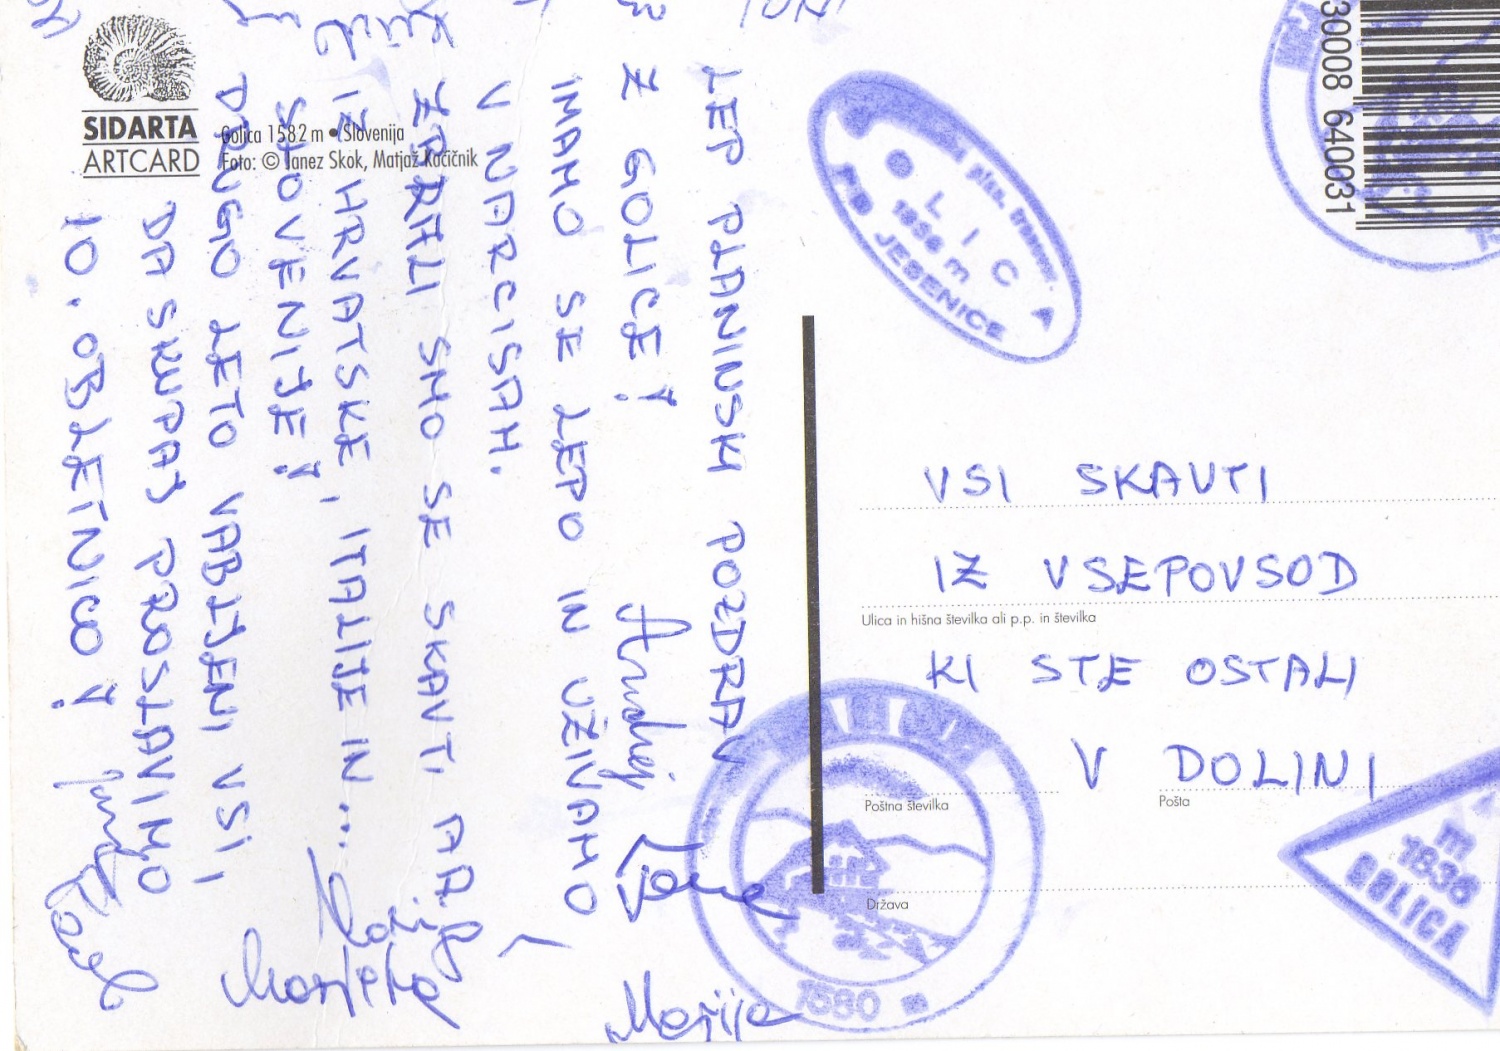 SIDARTA
ARTCARD
Golica 1582 m • Slovenija
Foto: © Janez Skok, Matjaž Kačičnik
LEP PLANINSKI POZDRAV
Z GOLICE!
IMAMO SE LEPO IN UŽIVAMO
V NARCISAH.
ZBRALI SMO SE SKAVTI
IZ HRVATSKE, ITALIJE IN...
SLOVENIJE!
DRUGO LETO VABLJENI VSI,
DA SKUPAJ PROSLAVIMO
10. OBLETNICO!
Andrej
Marjeta
Marija
VSI SKAVTI
IZ VSEPOVSOD
Ulica in hišna številka ali p.p. in številka
KI STE OSTALI
V DOLINI
Poštna številka
Pošta
Država
plan. transver.
GOLICA
1836 m
PD JESENICE
1580 m
m
1836
GOLICA
30008 640031